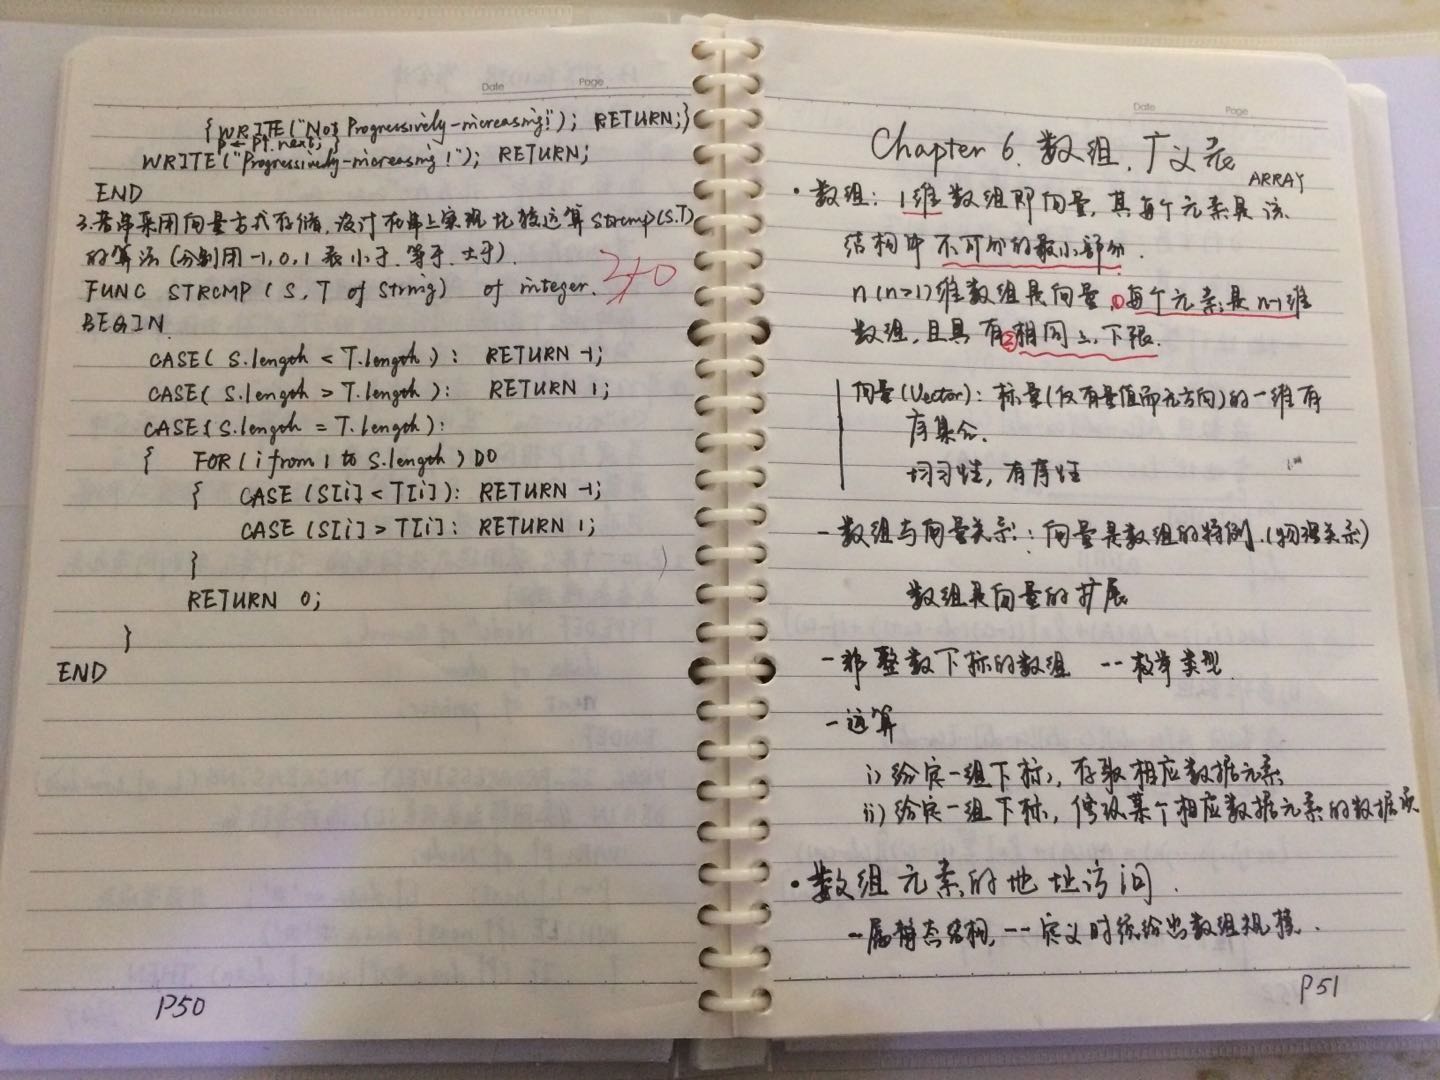 Date Page
{ WRITE("Not Progressively-increasing!"); RETURN;}
P ← P↑.next; }
WRITE("Progressively-increasing!"); RETURN;
END
3.若串采用向量方式存储,设计在串上实现比较运算Strcmp(S.T)
的算法(分别用-1,0,1表小于.等于.大于).
FUNC STRCMP (S, T of String) of integer.
BEGIN
CASE( S.length < T.length ): RETURN -1;
CASE( S.length > T.length ): RETURN 1;
CASE(S.length = T.length):
{ FOR(i from 1 to S.length) DO
{ CASE (S[i] < T[i]): RETURN -1;
CASE (S[i] > T[i]: RETURN 1;
}
RETURN 0;
}
END
P50
Date Page
Chapter 6.数组.广义表
ARRAY
·数组: 1维数组即向量,其每个元素是该
结构中不可分的最小部分.
n(n>1)维数组是向量,①每个元素是n-1维
数组,且具有②相同上、下限.
向量(Vector): 标量(仅有量值而无方向)的一维有
序集合.
均匀性,有序性
-数组与向量关系: 向量是数组的特例.(物理关系)
数组是向量的扩展
-非整数下标的数组 --枚举类型
-运算
i) 给定一组下标,存取相应数据元素
ii) 给定一组下标,修改某个相应数据元素的数据项
·数组元素的地址访问.
-属静态结构, --定义时须给出数组规模.
P51